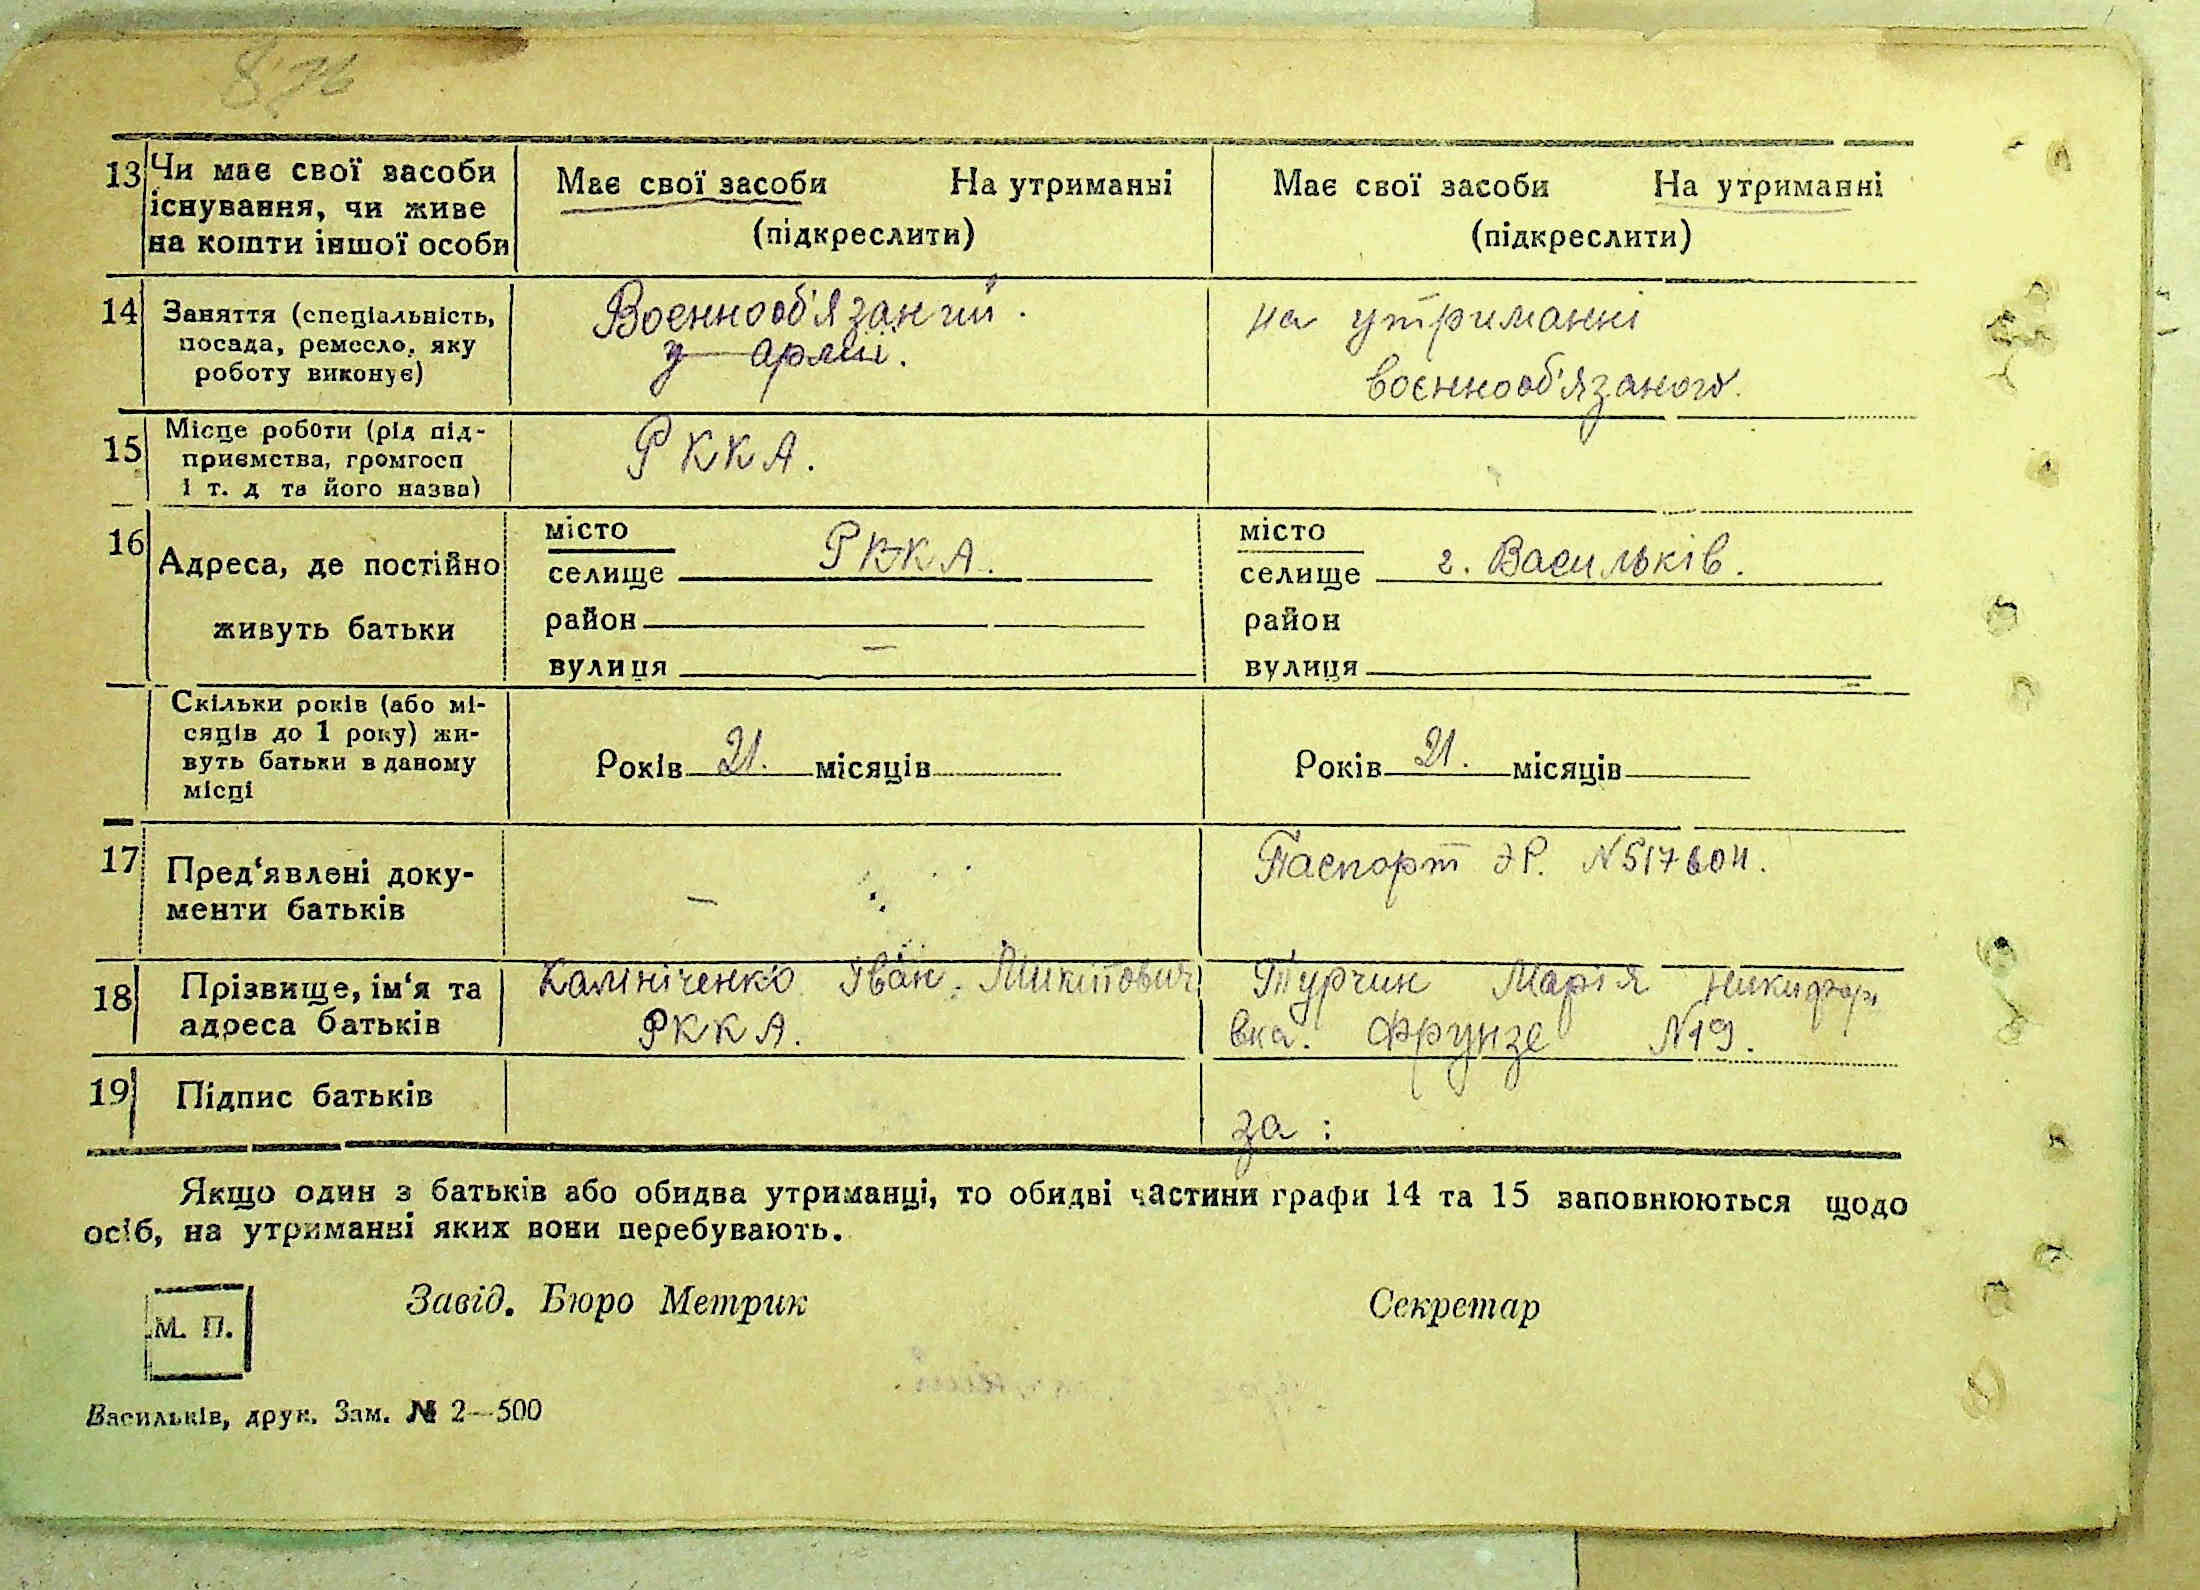 13 Чи має свої засоби існування, чи живе на кошти іншої особи
Має свої засоби На утриманні
(підкреслити)
Має свої засоби На утриманні
(підкреслити)
14 Заняття (спеціальність,
посада, ремесло, яку
роботу виконує)
Воєннооб'язаний.
у армії.
на утриманні
воєннооб'язаного.
15 Місце роботи (рід під-
приємства, громгосп
і т. д та його назва)
РККА.
16 Адреса, де постійно
живуть батьки
місто
селище РККА.
район
вулиця
місто
селище г. Васильків.
район
вулиця
Скільки років (або мі-
сяців до 1 року) жи-
вуть батьки в даному
місці
Років 21. місяців
Років 21. місяців
17 Пред'явлені доку-
менти батьків
—
Паспорт ЭР. №517604.
18 Прізвище, ім'я та
адреса батьків
Калініченко Іван Микітович
РККА.
Турчин Марія Никифор
вна. Фрунзе №19.
19 Підпис батьків
за:
Якщо один з батьків або обидва утриманці, то обидві частини графи 14 та 15 заповнюються щодо
осіб, на утриманні яких вони перебувають.
М. П.
Завід. Бюро Метрик
Секретар
Васильків, друк. Зам. № 2—500